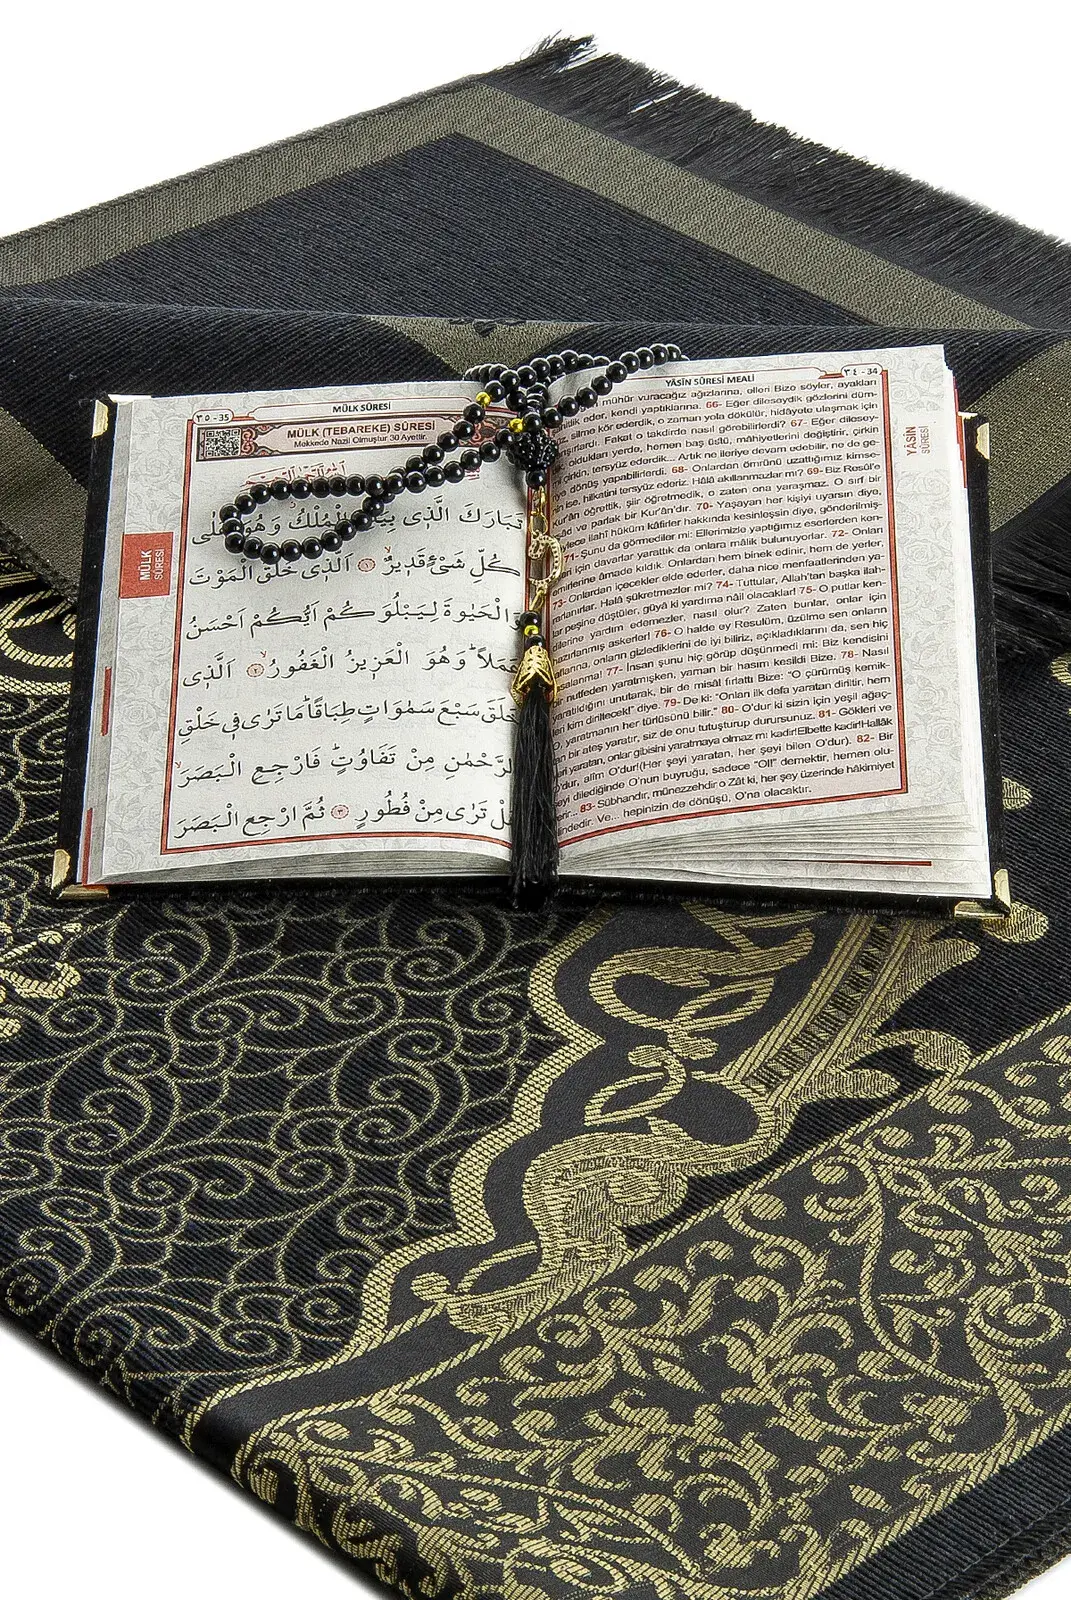 ٣٥-35
MÜLK SÛRESİ
MÜLK (TEBAREKE) SÛRESİ
Mekkede Nazil Olmuştur 30 Ayettir.
MÜLK
SÛRESİ
تَبَارَكَ الَّذ۪ي الْمُلْكُ وَهُوَ
كُلِّ شَيْءٍ قَد۪يرٌۙ ﴿١﴾ اَلَّذ۪ي خَلَقَ الْمَوْتَ
وَالْحَيٰوةَ لِيَبْلُوَكُمْ اَيُّكُمْ اَحْسَنُ
عَمَلاًۜ وَهُوَ الْعَز۪يزُ الْغَفُورُۙ ﴿٢﴾ اَلَّذ۪ي
خَلَقَ سَبْعَ سَمٰوَاتٍ طِبَاقًاۜ مَا تَرٰى ف۪ي خَلْقِ
الرَّحْمٰنِ مِنْ تَفَاوُتٍۜ فَارْجِعِ الْبَصَرَۙ
هَلْ تَرٰى مِنْ فُطُورٍ ﴿٣﴾ ثُمَّ ارْجِعِ الْبَصَرَ
YÂSİN SÛRESİ MEALİ
٣٤-34
YÂSİN
SÛRESİ
mühür vuracağız ağızlarına, elleri Bize söyler, ayakları
eder, kendi yaptıklarına. 66- Eğer dileseydik gözlerini düm-
düz, silme kör ederdik, o zaman yola dökülür, hidâyete ulaşmak için
yarışırlardı. Fakat o takdirde nasıl görebilirlerdi? 67- Eğer dilesey-
dik oldukları yerde, hemen baş üstü, mâhiyetlerini değiştirir, çirkin
çirkin, tersyüz ederdik... Artık ne ileriye devam edebilir, ne de ge-
riye dönüş yapabilirlerdi. 68- Onlardan ömrünü uzattığımız kimse-
nin ise, hilkatini tersyüz ederiz. Hâlâ akıllanmazlar mı? 69- Biz Resûl'e
Kur'ân öğrettik, şiir öğretmedik, o zaten ona yaraşmaz. O sırf bir
ve parlak bir Kur'ân'dır. 70- Yaşayan her kişiyi uyarsın diye,
böylece ilahî hüküm kâfirler hakkında kesinleşsin diye, gönderilmiş-
71- Şunu da görmediler mi: Ellerimizle yaptığımız eserlerden ken-
dileri için davarlar yarattık da onlara mâlik bulunuyorlar. 72- Onları
emirlerine âmade kıldık. Onlardan hem binek edinir, hem de yerler.
73- Onlardan içecekler elde ederler, daha nice menfaatlerinden ya-
rarlanırlar. Halâ şükretmezler mi? 74- Tuttular, Allah'tan başka ilah-
lar peşine düştüler, güya ki yardıma nâil olacaklar! 75- O putlar ken-
dilerine yardım edemezler, nasıl olur? Zaten bunlar, onlar için
hazırlanmış askerler! 76- O halde ey Resulüm, üzülme sen onların
laflarına, onların gizlediklerini de iyi biliriz, açıkladıklarını da, sen hiç
tasalanma! 77- İnsan şunu hiç görüp düşünmedi mi: Biz kendisini
bir nutfeden yaratmışken, yaman bir hasım kesildi Bize. 78- Nasıl
yaratıldığını unutarak, bir de misâl fırlattı Bize: "O çürümüş kemik-
leri kim diriltecek!" diye. 79- De ki: "Onları ilk defa yaratan diriltir, hem
O, yaratmanın her türlüsünü bilir." 80- O'dur ki sizin için yeşil ağaç-
tan bir ateş yaratır, siz de onu tutuşturup durursunuz. 81- Gökleri ve
yeri yaratan, onlar gibisini yaratmaya olmaz mı kadir!Elbette kadir!Hallâk
O'dur, alîm O'dur!(Her şeyi yaratan, her şeyi bilen O'dur). 82- Bir
şeyi dilediğinde O'nun buyruğu, sadece "Ol!" demektir, hemen olu-
verir... 83- Sübhandır, münezzehdir o Zât ki, her şey üzerinde hâkimiyet
elindedir. Ve... hepinizin de dönüşü, O'na olacaktır.